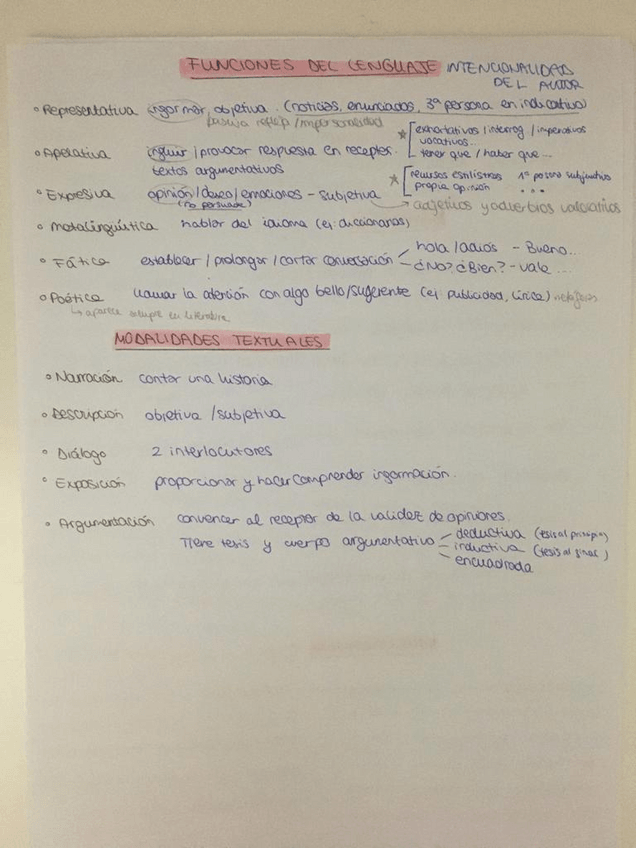 FUNCIONES DEL LENGUAJE INTENCIONALIDAD
DEL AUTOR
• Representativa informar, objetiva. (noticias, enunciados, 3ª persona en indicativo)
pasiva refleja / impersonalidad
* exhortativos / interrog / imperativos
vocativos...
tener que / haber que...
• Apelativa influir / provocar respuesta en receptor.
textos argumentativos
* recursos estilísticos 1ª persona subjuntivo
propia opinión ...
• Expresiva opinión / deseo / emociones - subjetiva
(no persuade) adjetivos y adverbios valorativos
• Metalingüística hablar del idioma (ej: diccionarios)
• Fática establecer / prolongar / cortar conversación
hola / adiós - Bueno...
¿No? ¿Bien? - vale ...
• Poética llamar la atención con algo bello/sugerente (ej: publicidad, lírica)
↳ aparece siempre en literatura
MODALIDADES TEXTUALES
• Narración contar una historia
• Descripción objetiva / subjetiva
• Diálogo 2 interlocutores
• Exposición proporcionar y hacer comprender información.
• Argumentación convencer al receptor de la validez de opiniones.
Tiene tesis y cuerpo argumentativo
deductiva (tesis al principio)
inductiva (tesis al final)
encuadrada